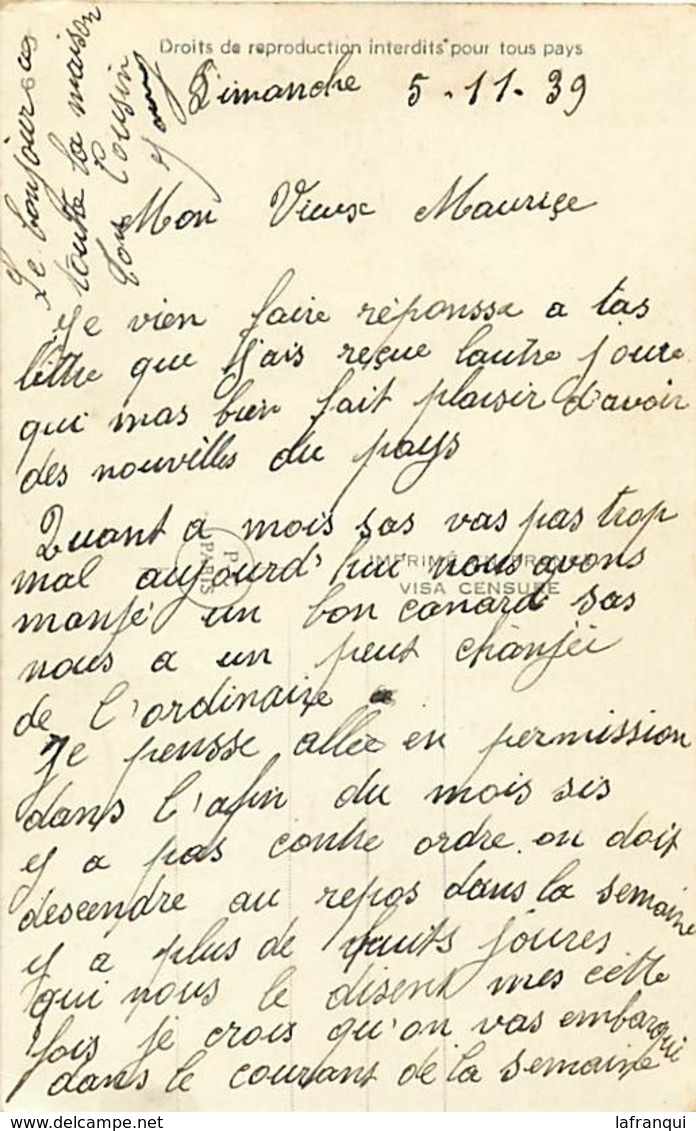 Droits de reproduction interdits pour tous pays
Dimanche 5-11-39
Mon Vieux Maurice
Je vien faire réponsse a tas
lettre que j'ais reçue lautre joure
qui mas bien fait plaisir d'avoir
des nouvelles du pays
Quant a mois sas vas pas trop
mal aujourd'hui nous avons
manjé un bon canard sas
nous a un peut chanjéi
de l'ordinaire
Je pensse allée en permission
dans l'afin du mois sis
y a pas contre ordre. on doit
descendre au repos dans la semaine
y a plus de huits joures
qui nous le disent mes cette
fois je crois qu'on vas embarqui
dans le courant de la semaine
Le bonjour a
toutte la maison
Ton Cousin
PARIS
VISA CENSURE
lafranqui
delcampe.net